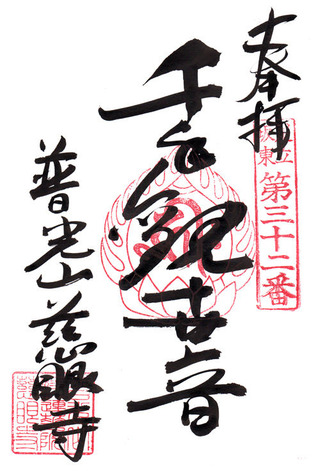 奉拝
第三十二番
千手観世音
普光山慈眼寺